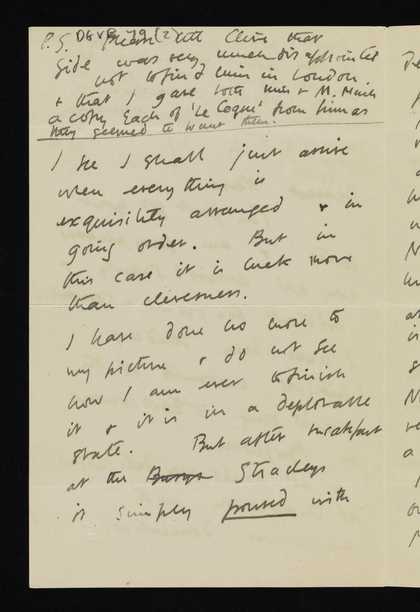 P.S. Please tell Clive that
Gide was very much disappointed
not to find him in London
& that I gave both him & M.
a copy each of 'Le Coque' from him as
they seemed to want them.
I see I shall just arrive
when everything is
exquisitely arranged & in
going order. But in
this case it is luck more
than cleverness.
I have done no more to
my picture & do not see
how I am ever to finish
it & it is in a deplorable
state. But after breakfast
at the Stracheys
it simply poured with